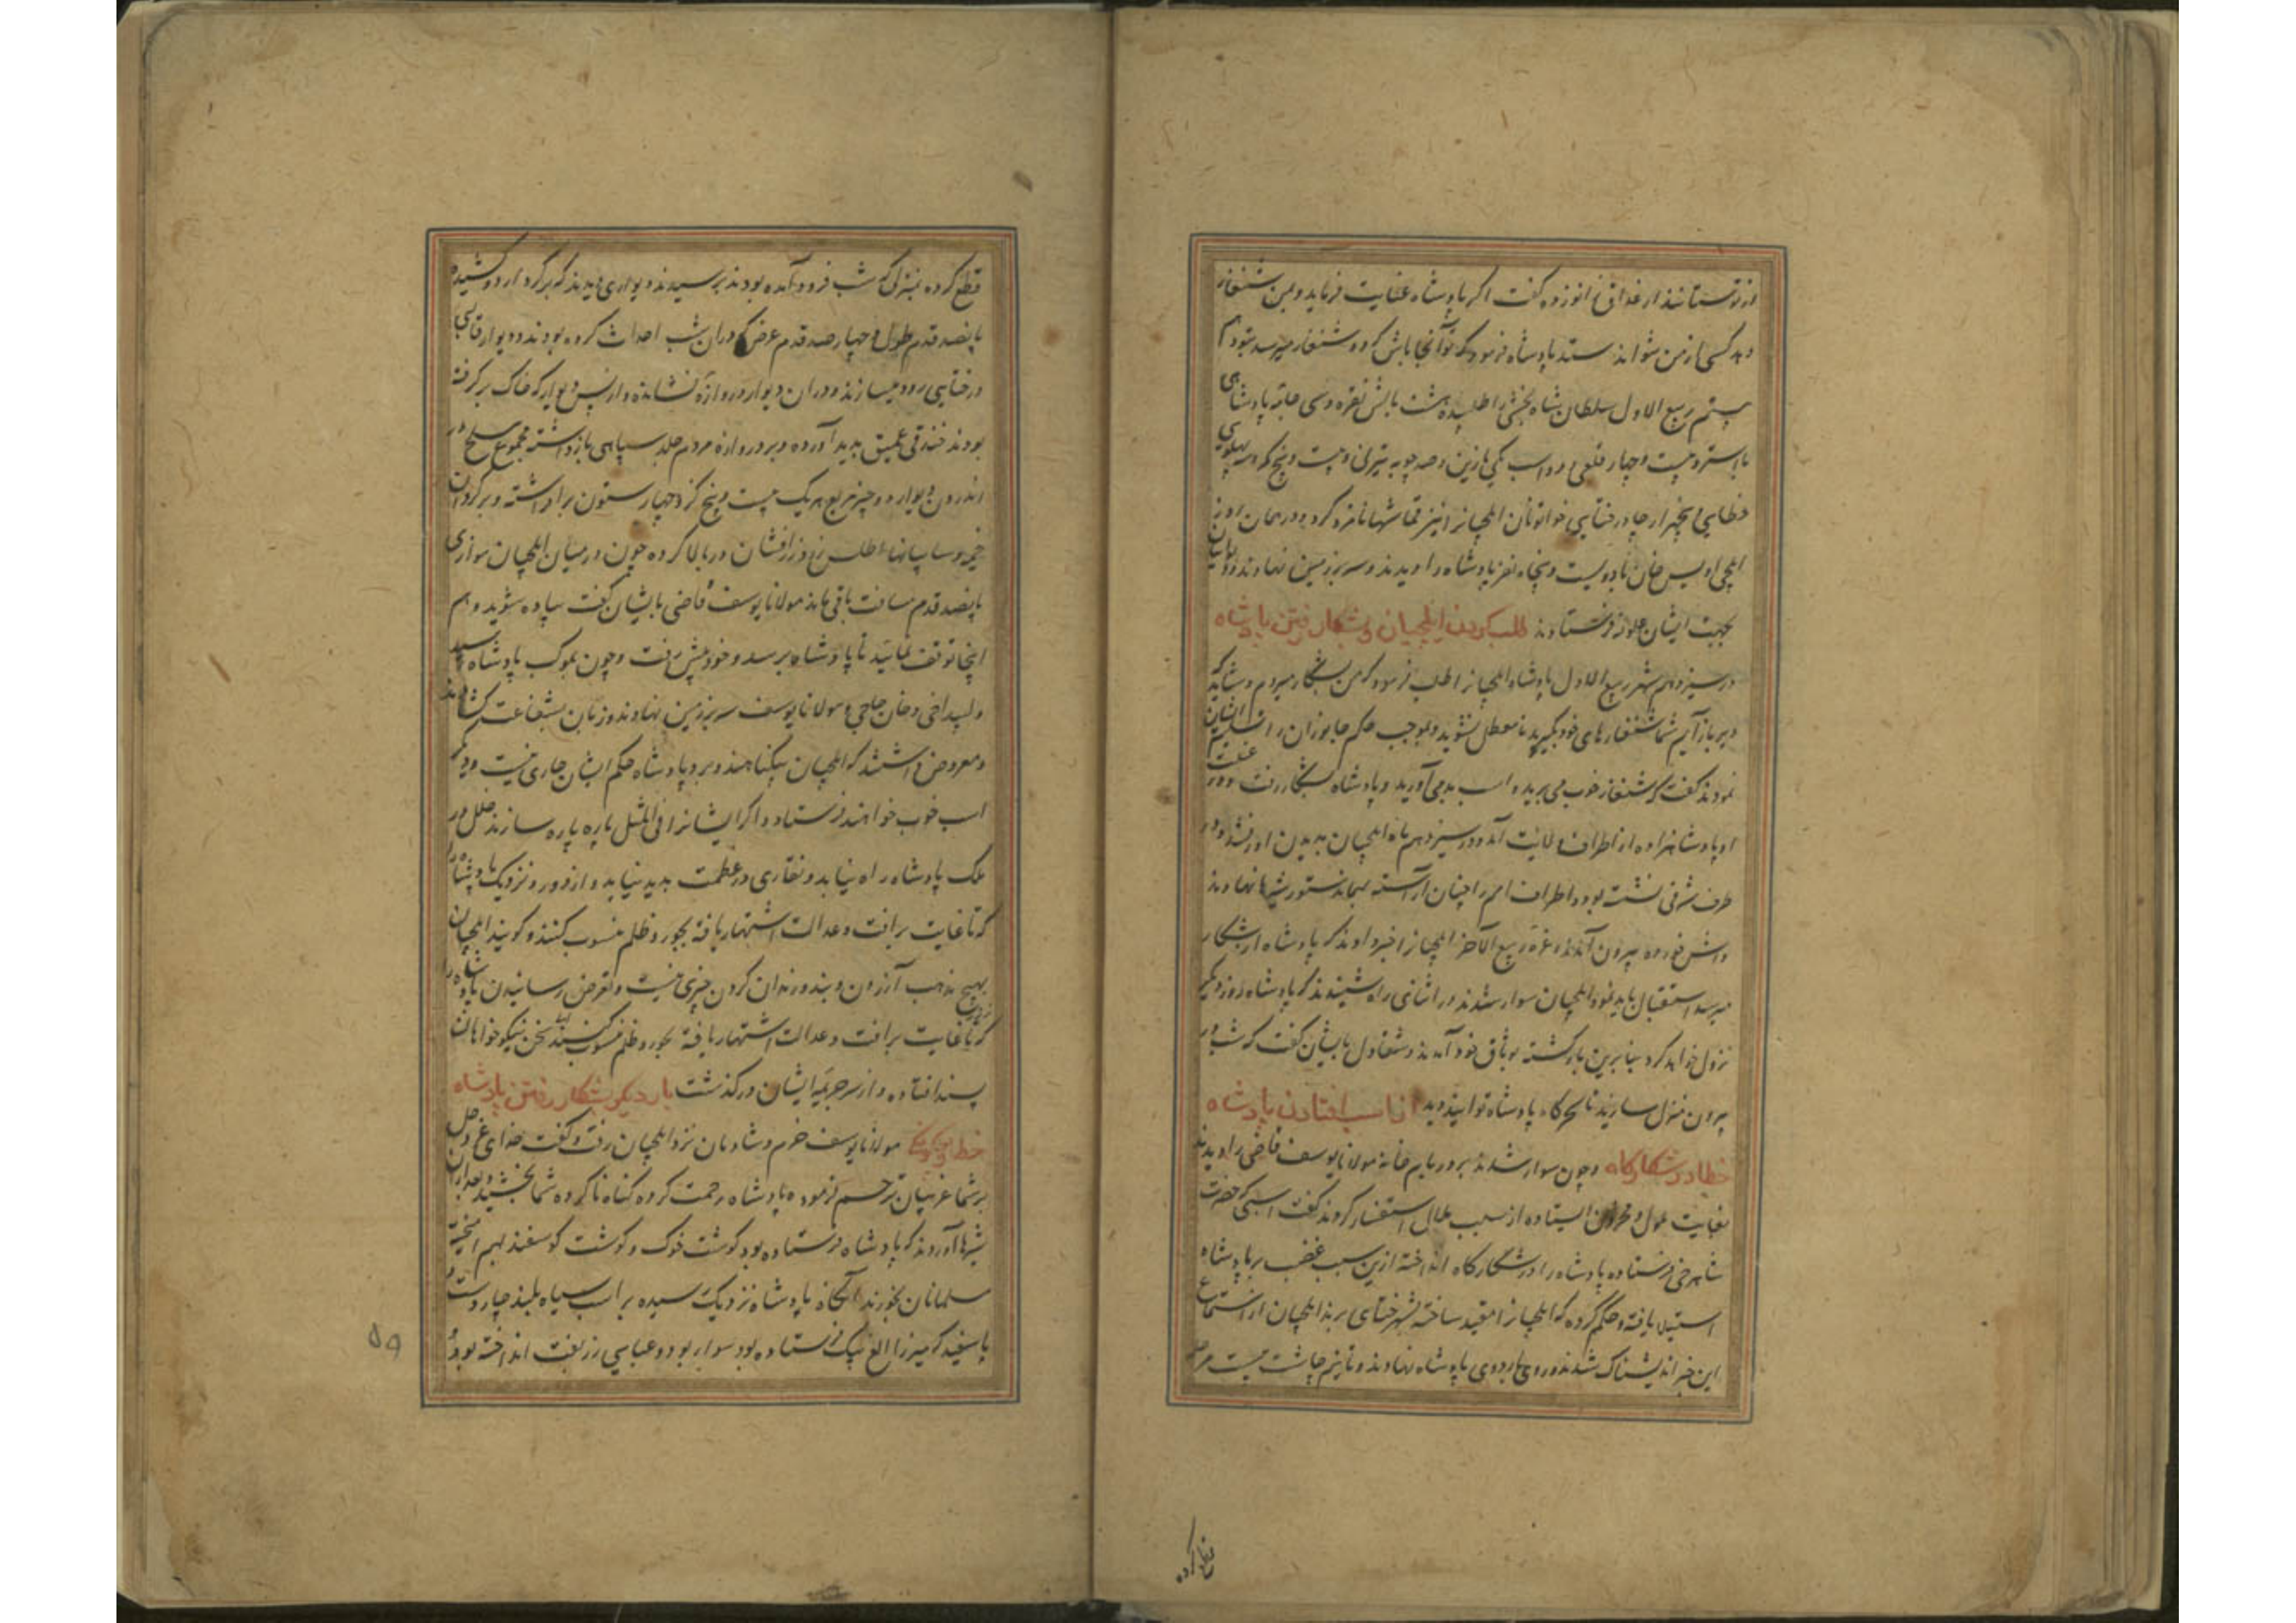 از تو ستانند ارغداق زانو زده گفت اگر پادشاه عنایت فرماید و بمن شنقار
دهد کسی از من نتواند ستد پادشاه فرمود که تو آنجا باش که دو شنقار میرسد بتو دهم
بیستم ربیع الاول سلطان شاه بخشی را طلبیده هشت بالش نقره و سی جامه پادشاهی
با استر و بیست و چهار قلعی و دو اسب یکی با زین و صد چوبه تیر نی و بیست و پنج کبر سه پهلوی
خطایی و پنجهزار چاو و خاتونان ایلچیانرا نیز قماشها نامزد کرد و در همان روز
ایلچی اویس خان با دویست و پنجاه نفر پادشاه را دیدند و سر بر زمین نهادند
بجهت ایشان علوفه فرستادند طلب کردن ایلچیان و بشکار رفتن پادشاه
در سیزدهم شهر ربیع الاول پادشاه ایلچیانرا طلب فرمود که من بشکار میروم و شاید که
دیر باز آیم شما شنقارهای خود بگیرید تا معطل نشوید و بموجب حکم جانوران را تسلیم ایشان
نمودند گفت که شنقار خوب می برید و اسب بد می آورید و پادشاه بشکار رفت و در غیبت
او پادشاهزاده از اطراف ولایت آمد و در سیزدهم ماه ایلچیان بدیدن او رفتند و در
طرف شرقی نشسته بود و اطراف امرا چنان آراسته بهمان دستور شیرها نهادند
و آش خورده بیرون آمدند غره ربیع الآخر ایلچیانرا خبر دادند که پادشاه از شکار
میرسد استقبال باید نمود ایلچیان سوار شدند در اثنای راه شنیدند که پادشاه روز دیگر
نزول خواهد کرد بنا برین بازگشته بوثاق خود آمدند و شغاول بایشان گفت که شب در
بیرون منزل سازید تا سحرگاه پادشاه توانید دید از اسب افتادن پادشاه
خطا در شکارگاه و چون سوار شدند بر در یام خانه مولانا یوسف قاضی را دیدند
بغایت ملول و محزون ایستاده از سبب ملال استفسار کردند گفت اسبی که حضرت
شاهرخی فرستاده پادشاه را در شکارگاه انداخته ازین سبب غضب بر پادشاه
استیلا یافته و حکم کرده که ایلچیانرا مقید ساخته بشهر ختای برند ایلچیان از استماع
این خبر اندیشناک شدند و روی باردوی پادشاه نهادند و تا نیم چاشت بیست مره
قطع کرده
قطع کرده بمنزلی که شب فرود آمده بودند برسیدند دیواری دیدند که بر گرد اردو کشیده
پانصد قدم طول و چهار صد قدم عرض که در ان شب احداث کرده بودند و دیوار قالبی
در ختایی زود میسازند و در ان دیوار دو دروازه نشانده و از پس دیوار که خاک بر گرفته
بودند خندقی عمیق پدید آورده و بر دروازه مردم جلد سپاهی بازداشته مجموع مسلح در
اندرون دیوار دو چیز مربع هر یک بیست و پنج گز و چهار ستون برافراشته و بر گرد ان
خیمه و سایبانها اطلس زرد زرافشان در بالا کرده چون در میان ایلچیان موازی
پانصد قدم مسافت باقی ماند مولانا یوسف قاضی بایشان گفت پیاده شوید و هم
اینجا توقف نمایید تا پادشاه برسد و خود پیش رفت و چون بموکب پادشاه رسید
و لیداجی و جان داجی و مولانا یوسف سر بر زمین نهادند و زبان بشفاعت گشادند
و معروض داشتند که ایلچیان بیگناهند و بر پادشاه حکم ایشان جاری نیست و دیگر
اسب خوب خواهند فرستاد و اگر ایشانرا فی المثل پاره پاره سازند خلل در
ملک پادشاه راه نیابد و نقاری در عظمت پدید نیاید و از دور و نزدیک پادشاه را
که تا غایت برافت و عدالت اشتهار یافته بجور و ظلم منسوب کنند و گویند ایلچیان
بهیچ مذهب آزردن و بند و زندان کردن چیزی نیست و تعرض رسانیدن پادشاه را
که تا غایت برافت و عدالت اشتهار یافته بجور و ظلم منسوب کنند سخن نیکو خواهان
پسند افتاده و از سر جریمه ایشان درگذشت بار دیگر بشکار رفتن پادشاه
خطا مولانا یوسف خرم و شادمان نزد ایلچیان رفت و گفت خدای عز و جل
بر شما غریبان ترحم فرموده پادشاه رحمت کرده گناه ناکرده شما بخشید و بعد از ان
شیرها آوردند که پادشاه فرستاده بود گوشت خوک و گوشت گوسفند بهم آمیخته
مسلمانان نخوردند آنگاه پادشاه نزدیک رسیده بر اسب سیاه بلند چهار دست و
پا سفید که میرزا الغ بیک فرستاده بود سوار بود و عبایی زربفت انداخته بود
۵۹